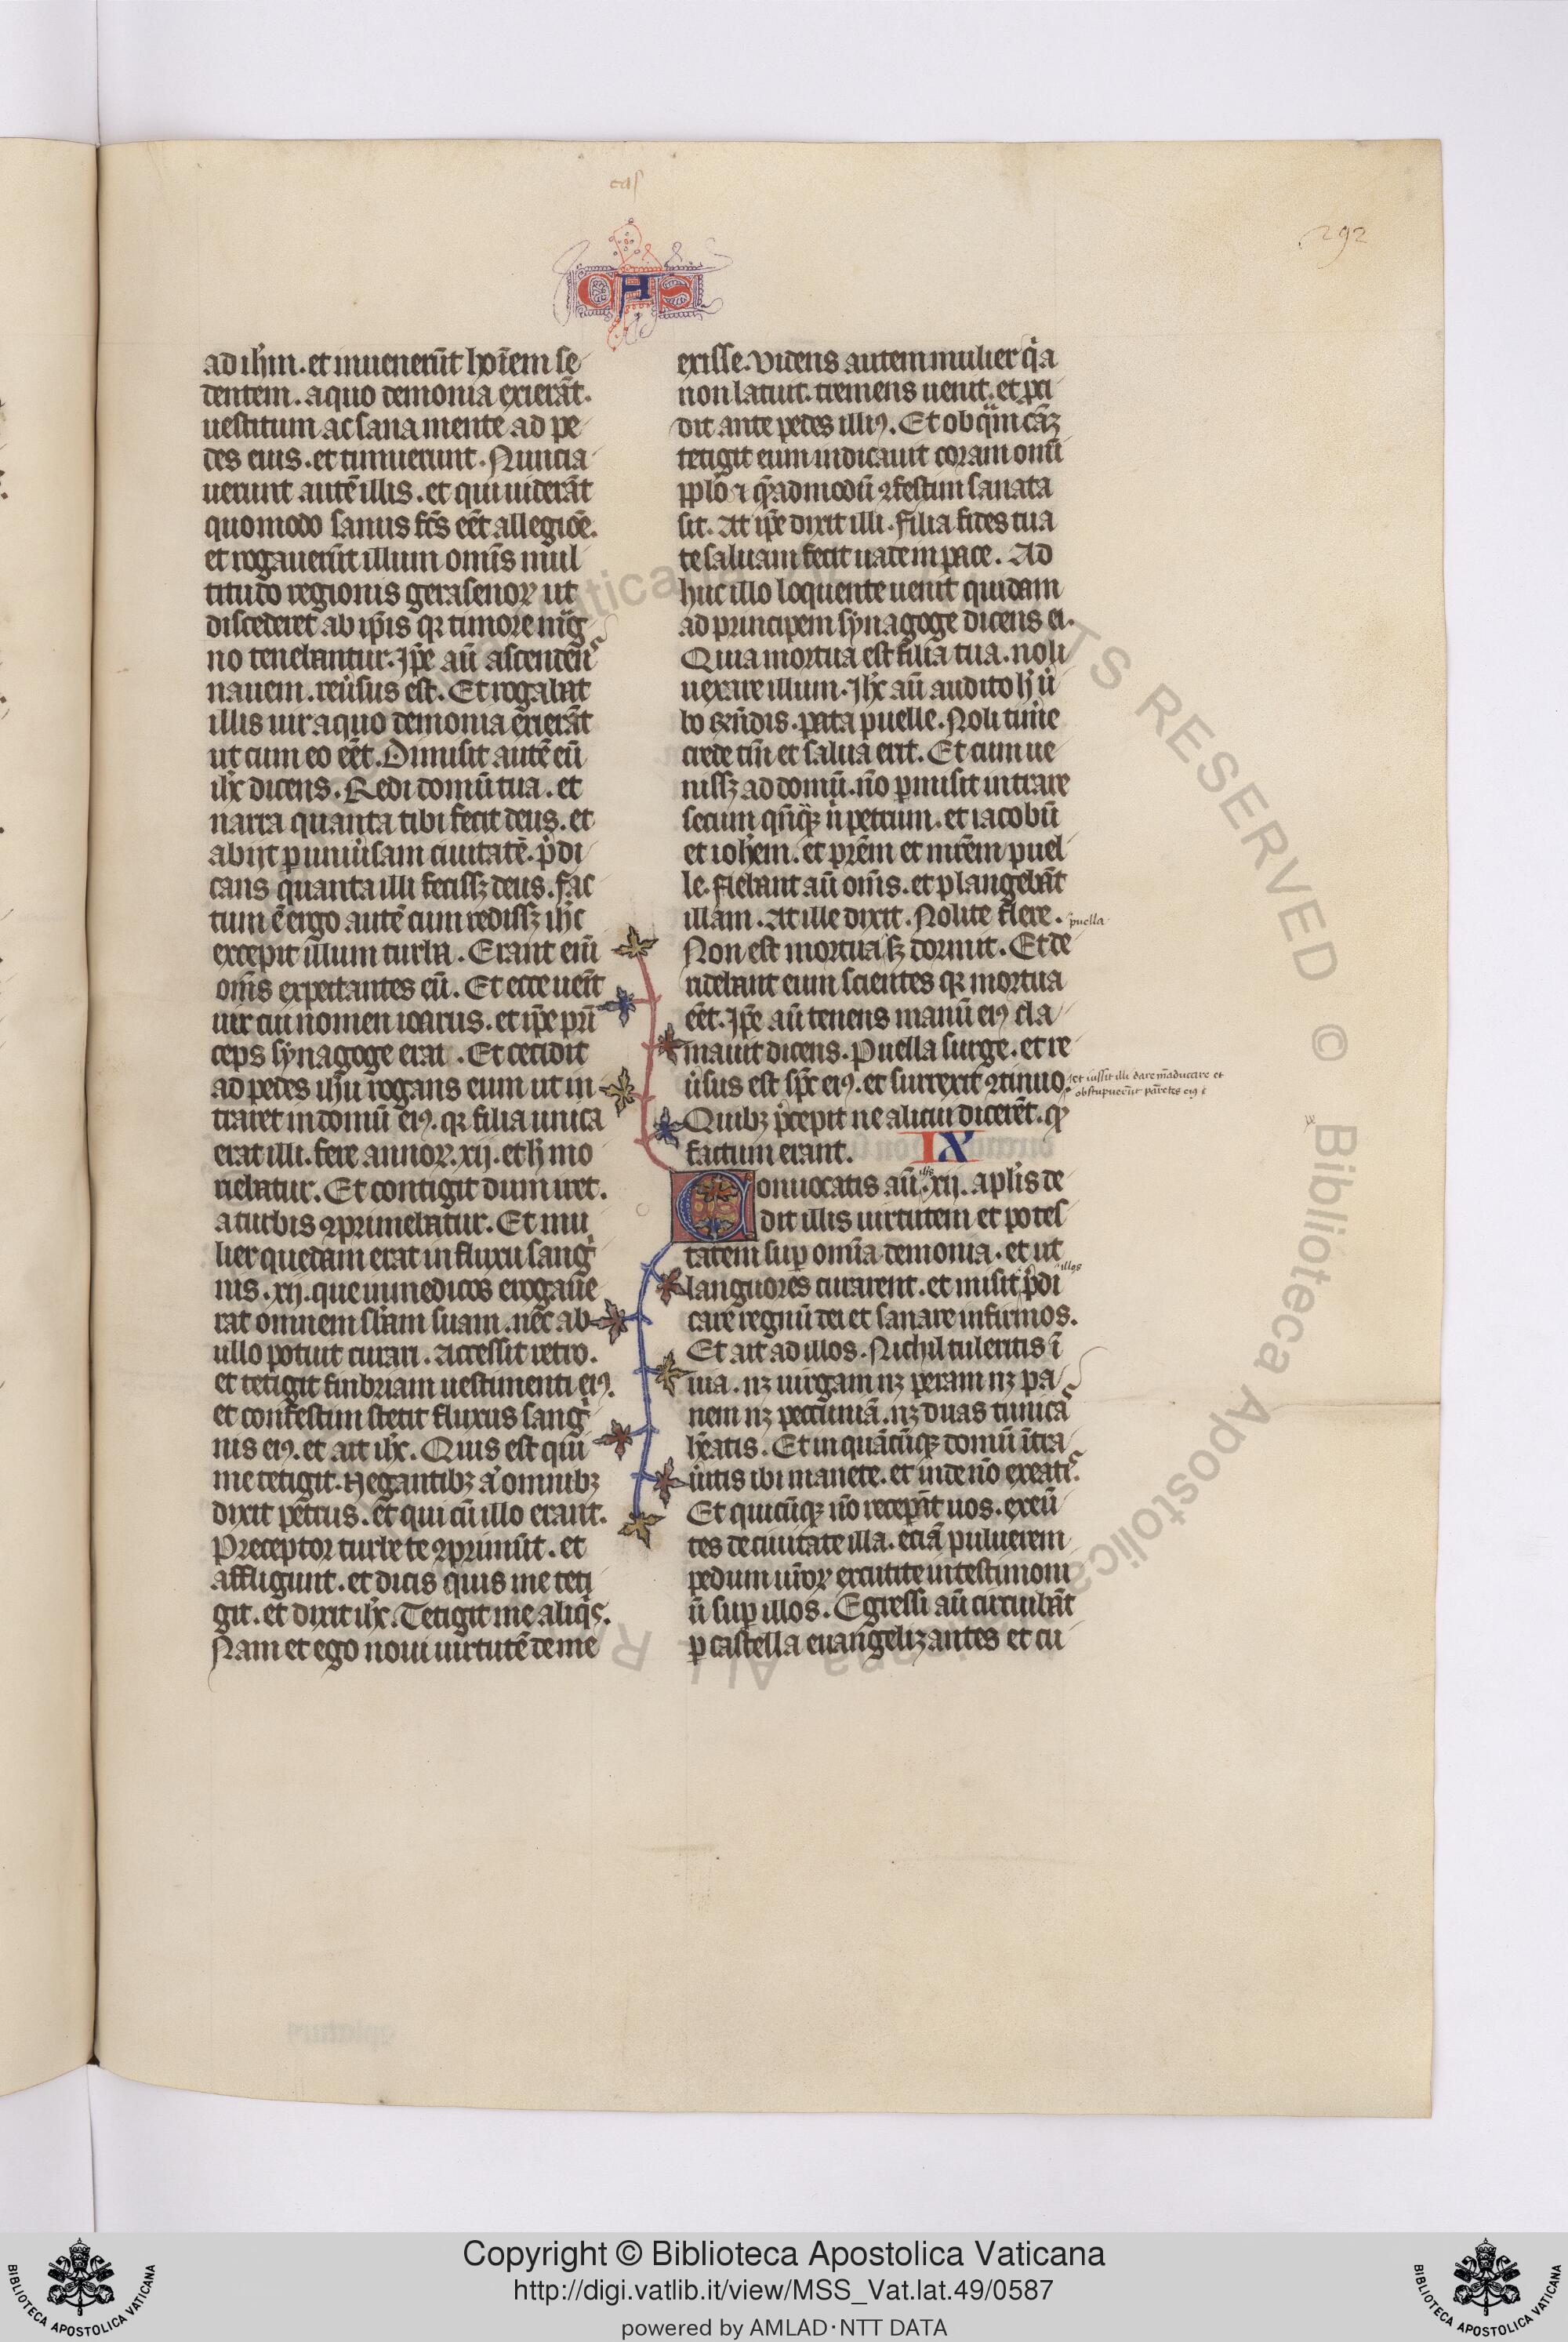 cas
CAS
292
ad ihm̄. et inuenerūt hoīem se
dentem. a quo demonia exierāt.
uestitum ac sana mente ad pe
des eius. et timuerunt. Nuncia
uerunt autē illis. et qui uiderāt
quomodo sanus fc̄s eēt a legiōe.
et rogauerūt illum om̄s mul
titudo regionis gerasenoꝝ ut
discederet ab ip̄is qꝛ timore mag
no tenebantur. Ip̄e aū ascenden̄s
nauem. reuersus est. Et rogabat
illis uir a quo demonia exierāt
ut cum eo eēt. Dimisit autē eū
ihc̄ dicens. Redi domū tua. et
narra quanta tibi fecit deus. et
abijt ꝑ uniūsam ciuitatē. p̄di
cans quanta illi fecissꝫ deus. Fac
tum ē ergo autē cum redissꝫ ihc̄
excepit illum turba. Erant eni᷒
om̄s expectantes eū. Et ecce uenit
uir cui nomen iairus. et ip̄e prī
ceps synagoge erat. Et cecidit
ad pedes ihū rogans eum ut in
traret in domū eiꝰ. qꝛ filia unica
erat illi. fere annoꝝ. xij. et h̄ mo
riebatur. Et contigit dum iret.
a turbis ꝯprimebatur. Et mu
lier quedam erat in fluxu sangⁱ
nis. xij. que in medicos erogaue
rat omnem sb̄am suam. nec̄ ab
ullo potuit curari. Accessit retro.
et tetigit finbriam uestimenti eiꝰ.
et confestim stetit fluxus sangⁱ
nis eiꝰ. et ait ihc̄. Quis est qui
me tetigit. Negantibꝫ aū omnibꝫ
dixit petrus. et qui cū illo erant.
Preceptor turbe te ꝯprimūt. et
affligunt. et dicis quis me teti
git. et dixit ihc̄. Tetigit me aliqⁱs.
Nam et ego noui uirtutē de me
exisse. Videns autem mulier qⁱa
non latuit. tremens uenit. et ꝓci
dit ante pedes illiꝰ. Et ob qᵃm cāꝫ
tetigit eum indicauit coram omni
pp̄lo ⁊ qᵉadmodū ꝯfestim sanata
sit. At ip̄e dixit illi. Filia fides tua
te saluam fecit uade in pace. Ad
huc illo loquente uenit quidam
ad principem synagoge dicens ei.
Quia mortua est filia tua. noli
uexare illum. Ihc̄ aū audito h̄ ū
bo rn̄dis. pat̄ puelle. Noli timē
crede tm̄ et salua erit. Et cum ue
nissꝫ ad domū. nō ꝑmisit intrare
secum qᵉnqᵃꝫ nⁱ petrum. et iacobū
et ioh̄em. et pr̄em et mr̄em puel
le. Flebant aū om̄s. et plangebāt
illam. At ille dixit. Nolite flere.
puella
Non est mortua sꝫ dormit. Et de
ridebant eum scientes qꝛ mortua
eēt. Ip̄e aū tenens manū eiꝰ cla
mauit dicens. Puella surge. et re
ūsus est sp̄c eiꝰ. et surrexit ꝯtinuo.
et iussit illi dare māducare et
obstupuerūt parētes eiꝰ
Quibꝫ p̄cepit ne alicui dicerēt. qᵒd
factum erant.
IX
Conuocatis aū. xij. apl̄is de
dit illis uirtutem et potes
tatem suꝑ omīa demonia. et ut
languores curarent. et misit p̄di
illos
care regnū dei et sanare infirmos.
Et ait ad illos. Nichil tuleritis ī
uia. nꝫ uirgam nꝫ peram nꝫ pa
nem nꝫ peccuniā. nꝫ duas tunicas
h̄eatis. Et in quācūqꝫ domū ītra
ūitis ibi manete. et inde nō exeatis.
Et quicūqꝫ nō receꝑit uos. exeū
tes de ciuitate illa. eciā puluerem
pedum ur̄oꝝ excutite in testimoni
ū suꝑ illos. Egressi aū circuibāt
ꝑ castella euangelizantes et cu
Copyright © Biblioteca Apostolica Vaticana
http://digi.vatlib.it/view/MSS_Vat.lat.49/0587
powered by AMLAD·NTT DATA
BIBLIOTECA APOSTOLICA VATICANA
BIBLIOTECA APOSTOLICA VATICANA